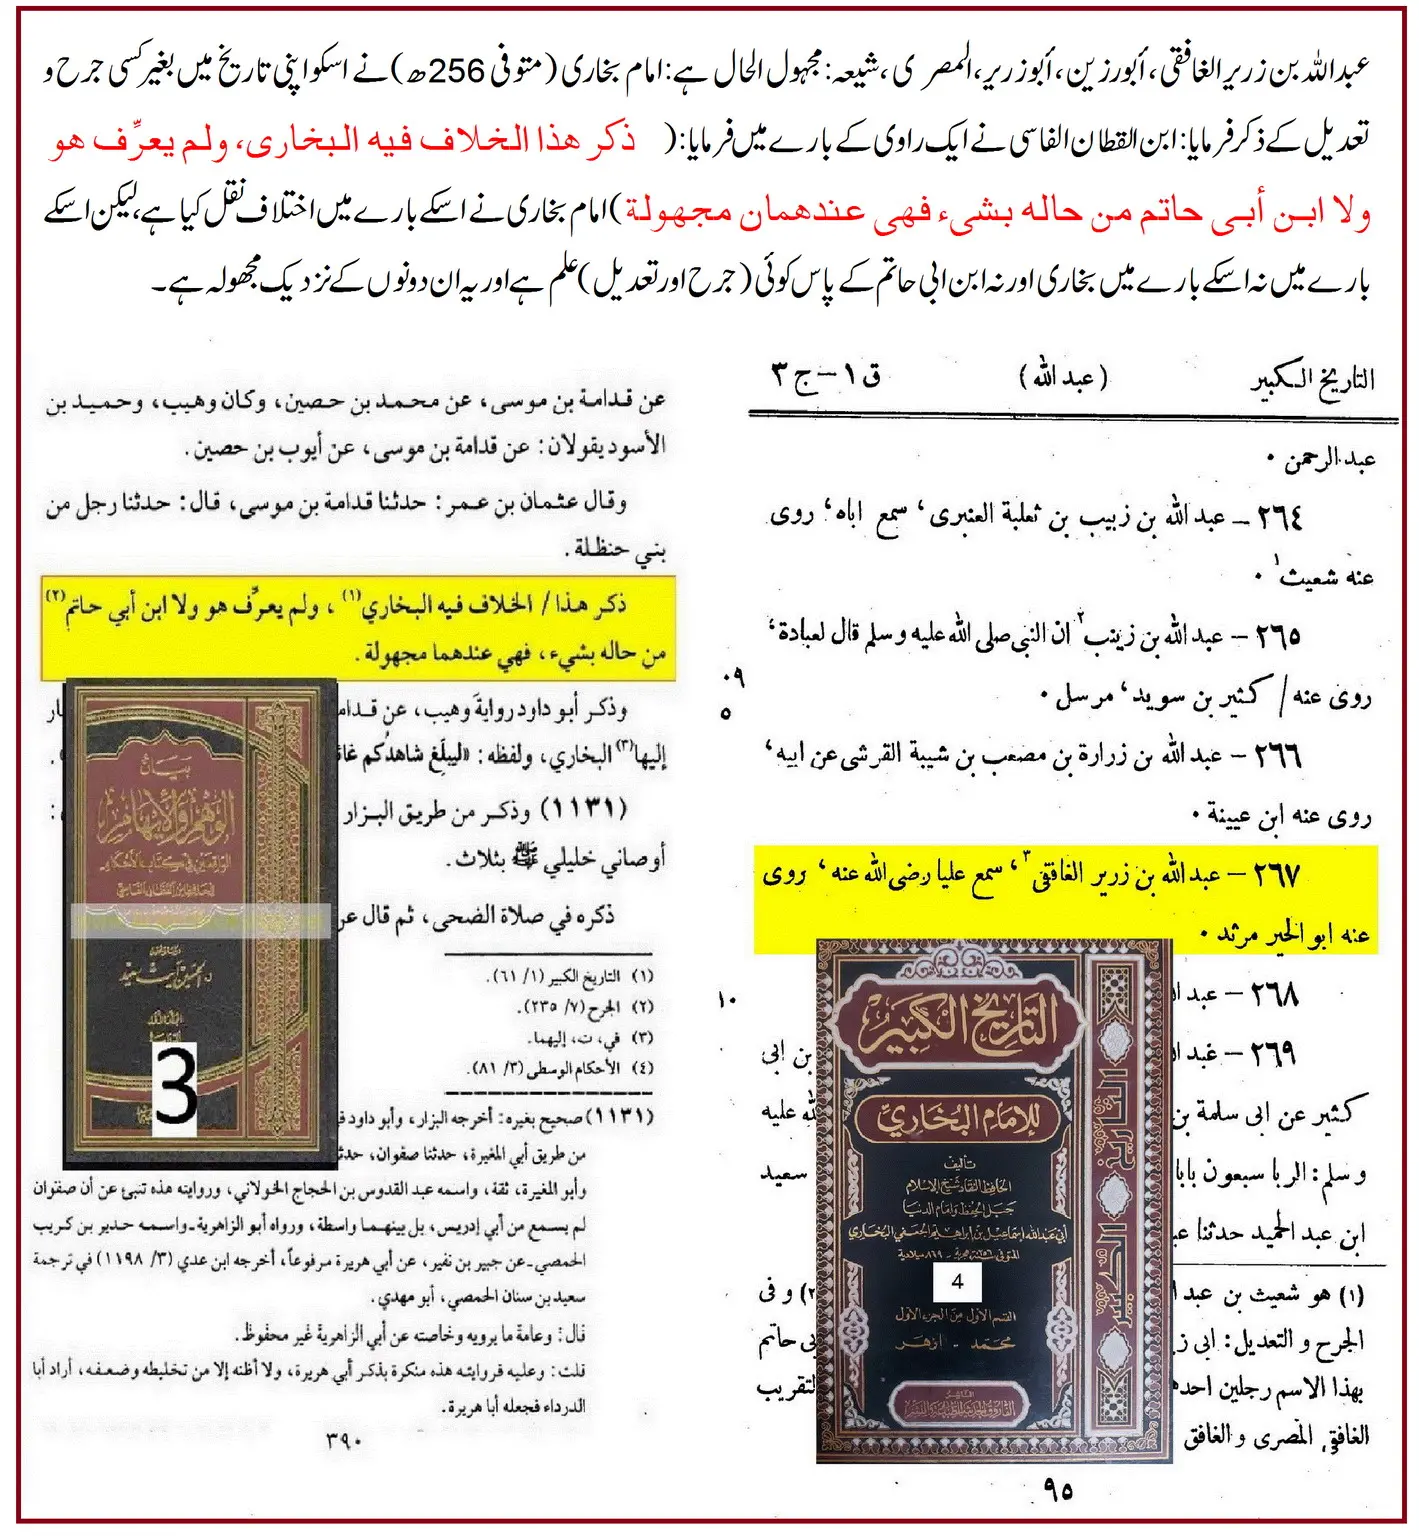 عبداللہ بن زریر الغافقی، أبورزین، أبوزریر، المصری، شیعہ: مجہول الحال ہے: امام بخاری (متوفی 256ھ) نے اسکو اپنی تاریخ میں بغیر کسی جرح و
تعدیل کے ذکر فرمایا: ابن القطان الفاسی نے ایک راوی کے بارے میں فرمایا: ( ذکر هذا الخلاف فیه البخاری، ولم یعرِّف هو
ولا ابن أبی حاتم من حاله بشیء فهی عندهمان مجهولة) امام بخاری نے اسکے بارے میں اختلاف نقل کیا ہے، لیکن اسکے
بارے میں نہ اسکے بارے میں بخاری اور نہ ابن ابی حاتم کے پاس کوئی (جرح اور تعدیل) علم ہے اور یہ ان دونوں کے نزدیک مجھولہ ہے۔
التاريخ الكبير (عبد الله) ق ١ – ج ٣
عبد الرحمن ٠
٢٦٤ – عبد الله بن زبيب بن ثعلبة العنبرى، سمع اباه، روى
عنه شعيث١ ٠
٢٦٥ – عبد الله بن زينب٢ ان النبي صلى الله عليه وسلم قال لعبادة،
روى عنه / كثير بن سويد، مرسل ٠
٠٩
٥
٢٦٦ – عبد الله بن زرارة بن مصعب بن شيبة القرشى عن ابيه،
روى عنه ابن عيينة ٠
٢٦٧ – عبد الله بن زرير الغافقى٣، سمع عليا رضى الله عنه، روى
عنه ابو الخير مرثد ٠
٢٦٨ – عبد
١٠
٢٦٩ – عبد
بن ابى
كثير عن ابى سلمة بن
عليه
وسلم: الربا سبعون بابا
سعيد
ابن عبد الحميد حدثنا
(١) هو شعيث بن عبد
و فى
الجرح و التعديل: ابى
حاتم
بهذا الاسم رجلين
التقريب
الغافقى المصرى و الغافق
٩٥
التاريخ الكبير
للإمام البخاري
تأليف
الحافظ النقاد شيخ الإسلام
جبل الحفظ وإمام الدنيا
أبي عبد الله إسماعيل بن إبراهيم الجعفي البخاري
4
القسم الأول من الجزء الأول
التاريخ الكبير
عن قدامة بن موسى، عن محمد بن حصين، وكان وهيب، وحميد بن
الأسود يقولان: عن قدامة بن موسى، عن أيوب بن حصين.
وقال عثمان بن عمر: حدثنا قدامة بن موسى، قال: حدثنا رجل من
بني حنظلة.
ذكر هذا / الخلاف فيه البخاري(١)، ولم يعرِّف هو ولا ابن أبي حاتم(٢)
من حاله بشيء، فهي عندهما مجهولة.
وذكر أبو داود رواية وهيب، عن
إليها(٣) البخاري، ولفظه: «ليبلّغ شاهدُكم
(١١٣١) وذكر من طريق البزار
أوصاني خليلي ﷺ بثلاث.
ذكره في صلاة الضحى، ثم قال
(١) التاريخ الكبير (١/ ٦١).
(٢) الجرح (٧/ ٢٣٥).
(٣) في، ت، إليهما.
(٤) الأحكام الوسطى (٣/ ٨١).
(١١٣١) صحيح بغيره: أخرجه البزار، وأبو داود
من طريق أبي المغيرة، حدثنا صفوان،
وأبو المغيرة، ثقة، واسمه عبد القدوس بن الحجاج الخولاني، وروايته هذه تنبئ عن أن صفوان
لم يسمع من أبي إدريس، بل بينهما واسطة، ورواه أبو الزاهرية-واسمه حدير بن كريب
الحمصي-عن جبير بن نفير، عن أبي هريرة مرفوعاً، أخرجه ابن عدي (٣/ ١١٩٨) في ترجمة
سعيد بن سنان الحمصي، أبو مهدي.
قال: وعامة ما يرويه وخاصته عن أبي الزاهرية غير محفوظ.
قلت: وعليه فروايته هذه منكرة بذكر أبي هريرة، ولا أظنه إلا من تخليطه وضعفه، أراد أبا
الدرداء فجعله أبا هريرة.
٣٩٠
بيان
الوهم والإيهام
3